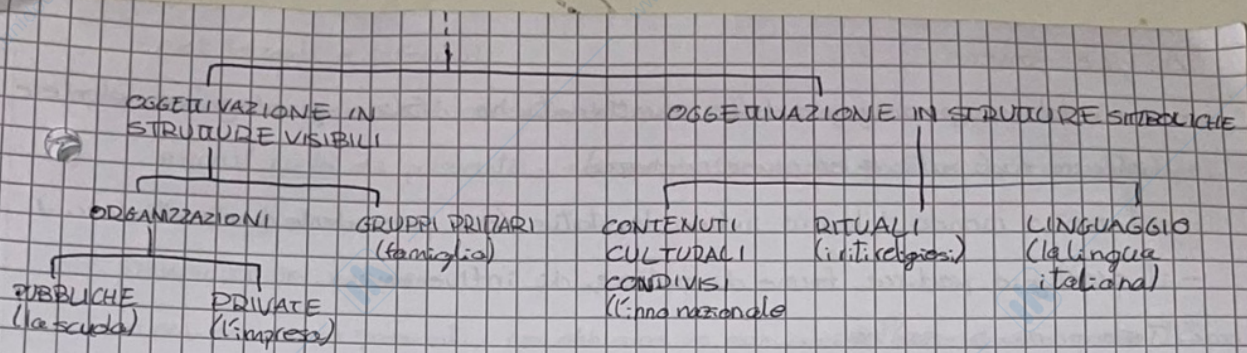 OGGETTIVAZIONE IN
STRUTTURE VISIBILI
OGGETTIVAZIONE IN STRUTTURE SIMBOLICHE
ORGANIZZAZIONI
GRUPPI PRIMARI
(famiglia)
CONTENUTI
CULTURALI
CONDIVISI
(l'inno nazionale
RITUALI
(i riti religiosi)
LINGUAGGIO
(la lingua
italiana)
PUBBLICHE
(la scuola)
PRIVATE
(l'impresa)